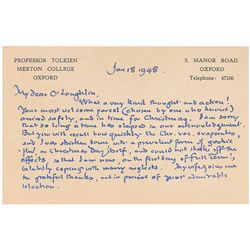 PROFESSOR TOLKIEN
MERTON COLLEGE
OXFORD
3, MANOR ROAD
OXFORD
Telephone: 47106
Jan 18 1948.
My dear O'Loughlin,
What a very kind thought and action!
Your most welcome parcel (chosen by one who knows)
arrived safely, and in time for Christmas. I am sorry
that so long a time has elapsed in our acknowledgement.
But you will recall how quickly the Chr. vac. evaporates, and
I was stricken down with a prevalent form of gastric
'flu' on Christmas Day itself, and could not shake off the
effects, so that I am now, on the first day of full term,
belatedly coping with many neglects. My wife joins me
in grateful thanks, and in praise of your admirable
selection.